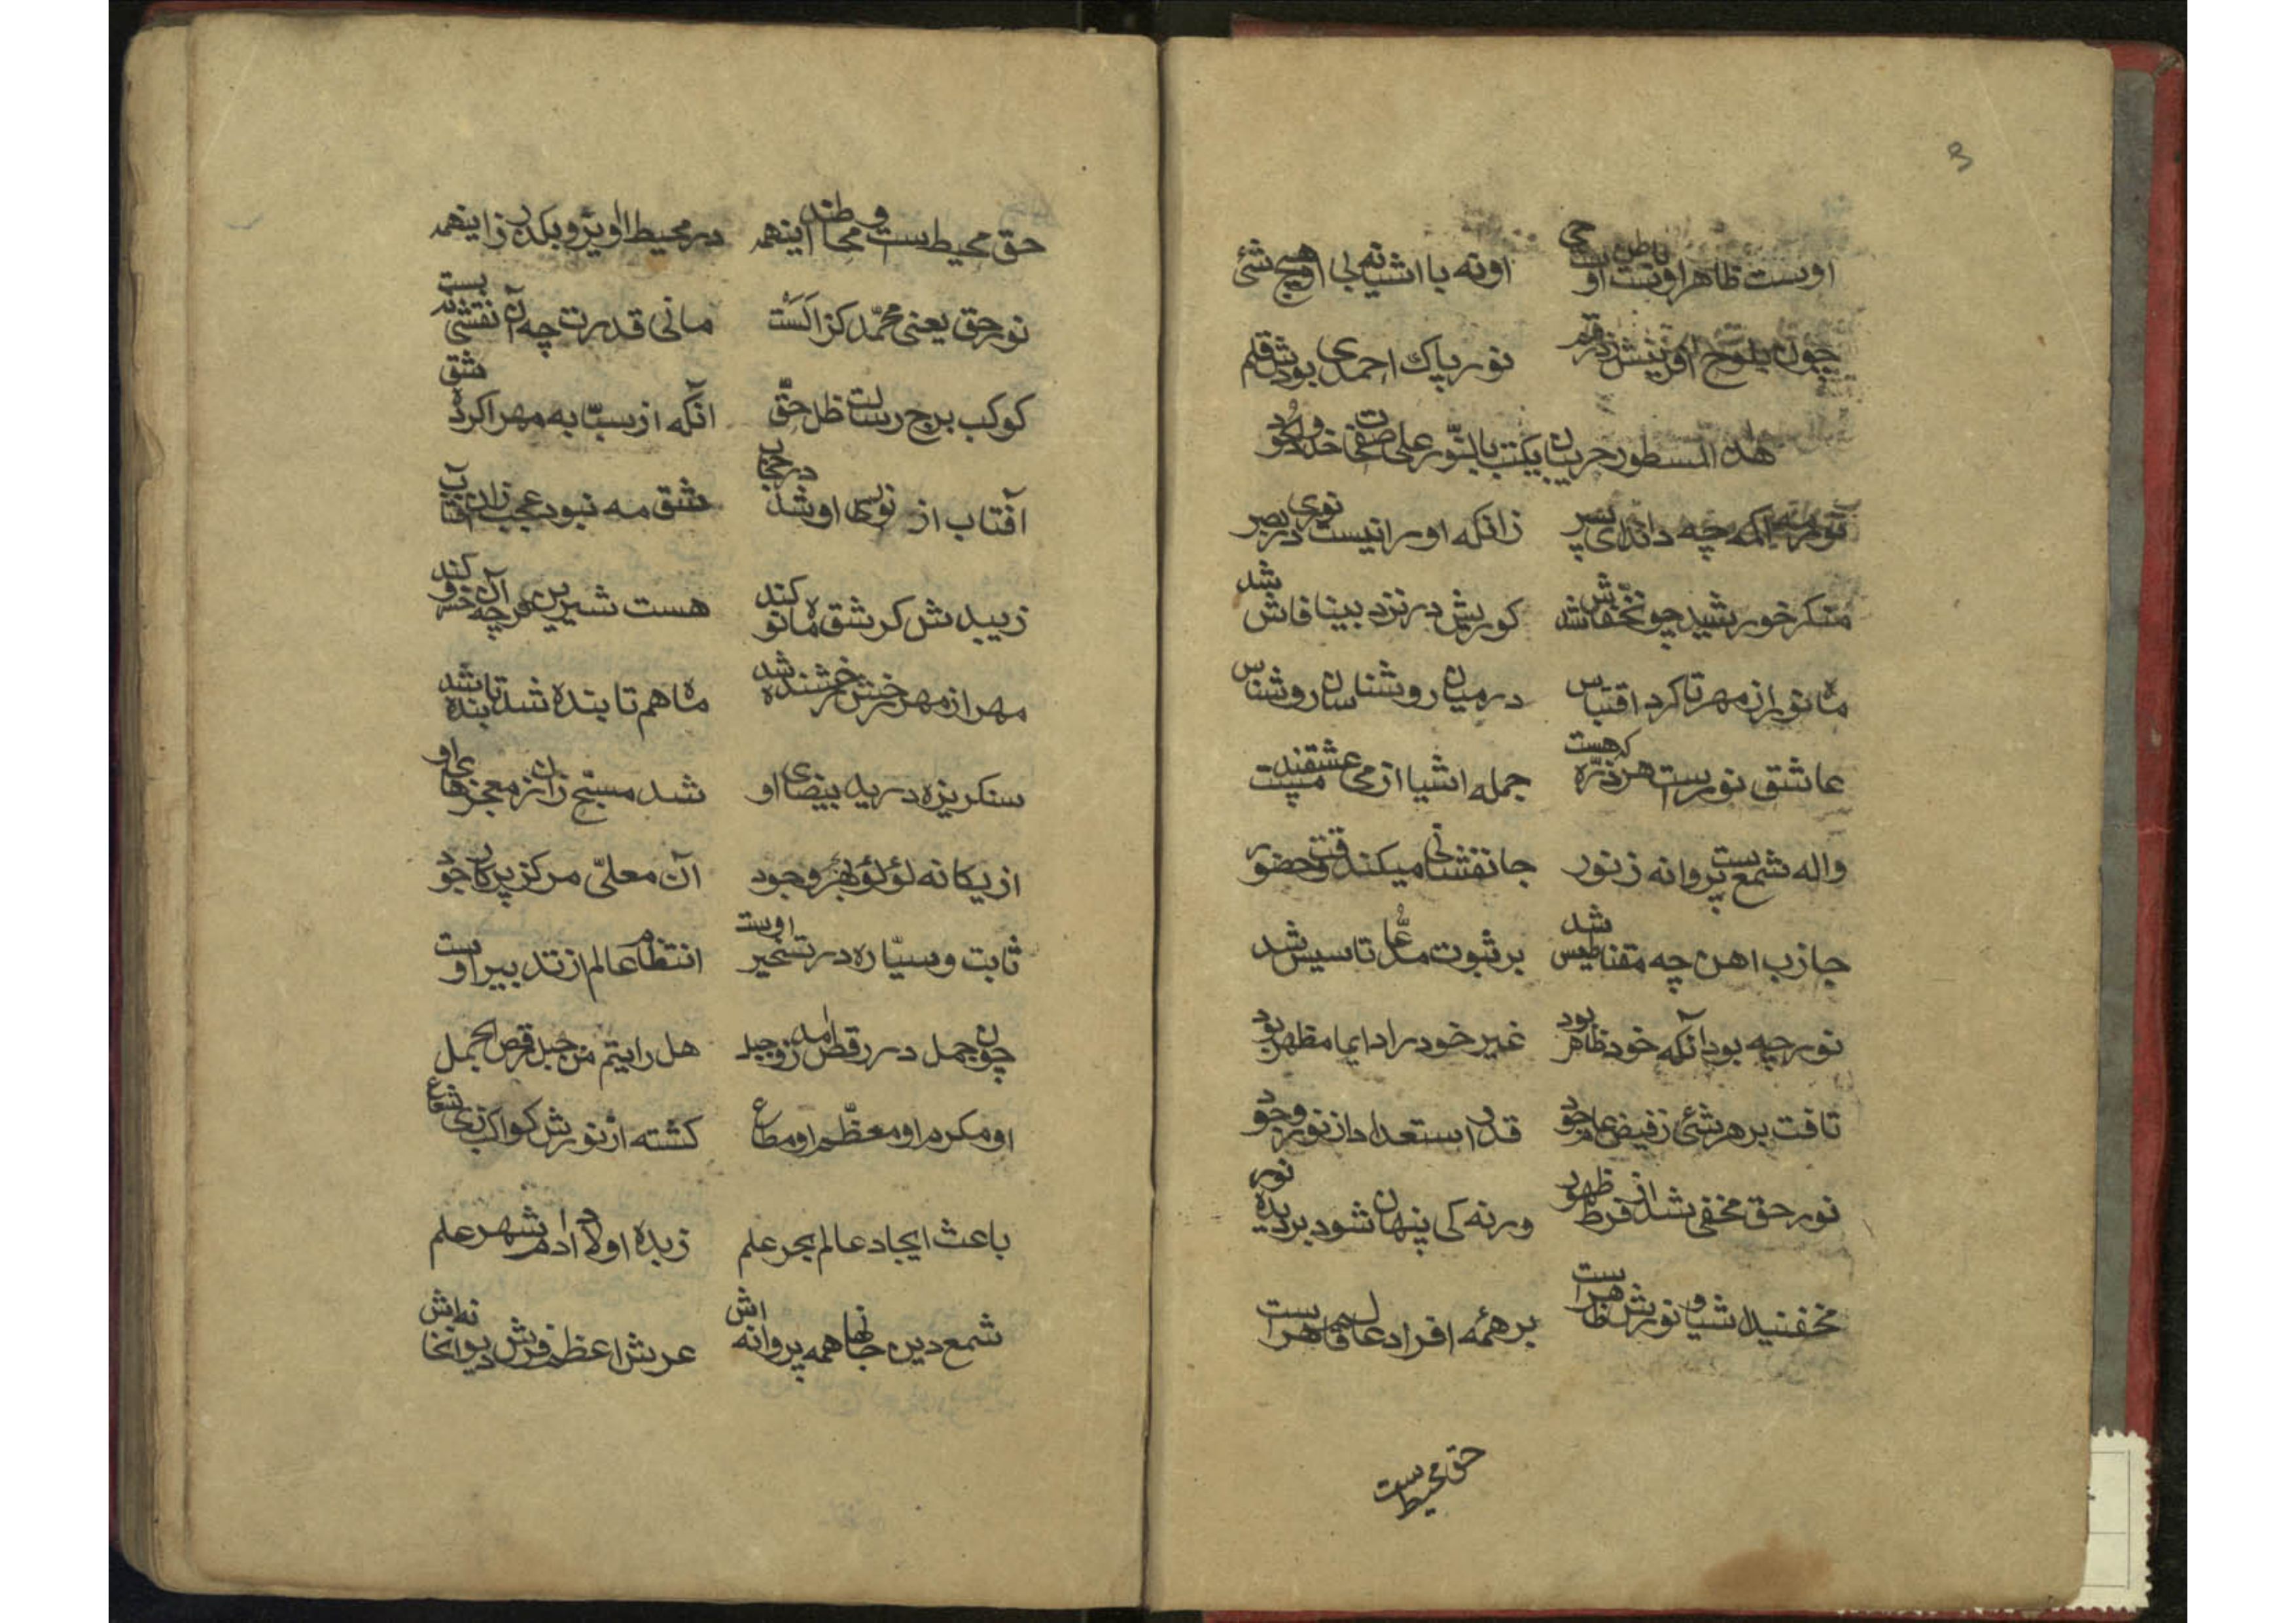 3
اوست ظاهر اوست باطن او حی اونه با اشیا نه بی او هیچ شئ
چون بلوح افرینش زد رقم نور پاک احمدی بودش قلم
نور مه اکمه چه داند ای پسر زانکه اورا نیست نوری در بصر
منکر خورشید چون خفاش شد کوریش در نزد بینا فاش شد
ماه نو از مهر تا کرد اقتباس در میان روشناسان روشناس
عاشق نورست هر ذره که هست جمله اشیا از می عشقند مست
واله شمع ست پروانه ز نور جانفشانی میکند وقت حضور
جازب اهن چه مقناطیس شد بر ثبوت مدعا تاسیس شد
نور چه بود آنکه خود ظاهر بود غیر خود را دایما مظهر بود
تافت بر هر شئ ز فیض عام جود قدر استعداد از نور وجود
نور حق مخفی شد از فرط ظهور ورنه کی پنهان شود بر دیده نور
مخفنید اشیا و نورش ظاهر است بر همه افراد عالم قاهر است
حق محیط ست
حق محیط ست و محاطند اینهمه در محیط او بزو بکذر ز اینهمه
نور حق یعنی محمّد کز الست مانی قدرت چه آن نقشی نه بست
کوکب برج رسالت ظل حقّ آنکه از سبّابه مه را کرد شق
آفتاب از نور او شد در حجاب شق مه نبود عجب زان آفتاب
زیبدش کر شق ماه نو کند هست شیرین هر چه آن خسرو کند
مهر از مهر رخش رخشنده شد ماه هم تابنده شد تا بنده شد
سنکریزه در ید بیضای او شد مسبّح زان ز معجزهای او
از یکانه لؤلؤ بحر وجود آن معلّی مرکز پرکار جود
ثابت و سیّاره در تسخیر اوست انتظام عالم از تدبیر اوست
چون جمل در رقص امد زو جبل هل رایتم من جبل رقص الجمل
او مکرم او معظّم او مطاع کشته از نورش کواکب ذی شعاع
باعث ایجاد عالم بحر علم زبده اولاد ادم شهر علم
شمع دیره جانها همه پروانه اش عرش اعظم فرش دیوانخانه اش